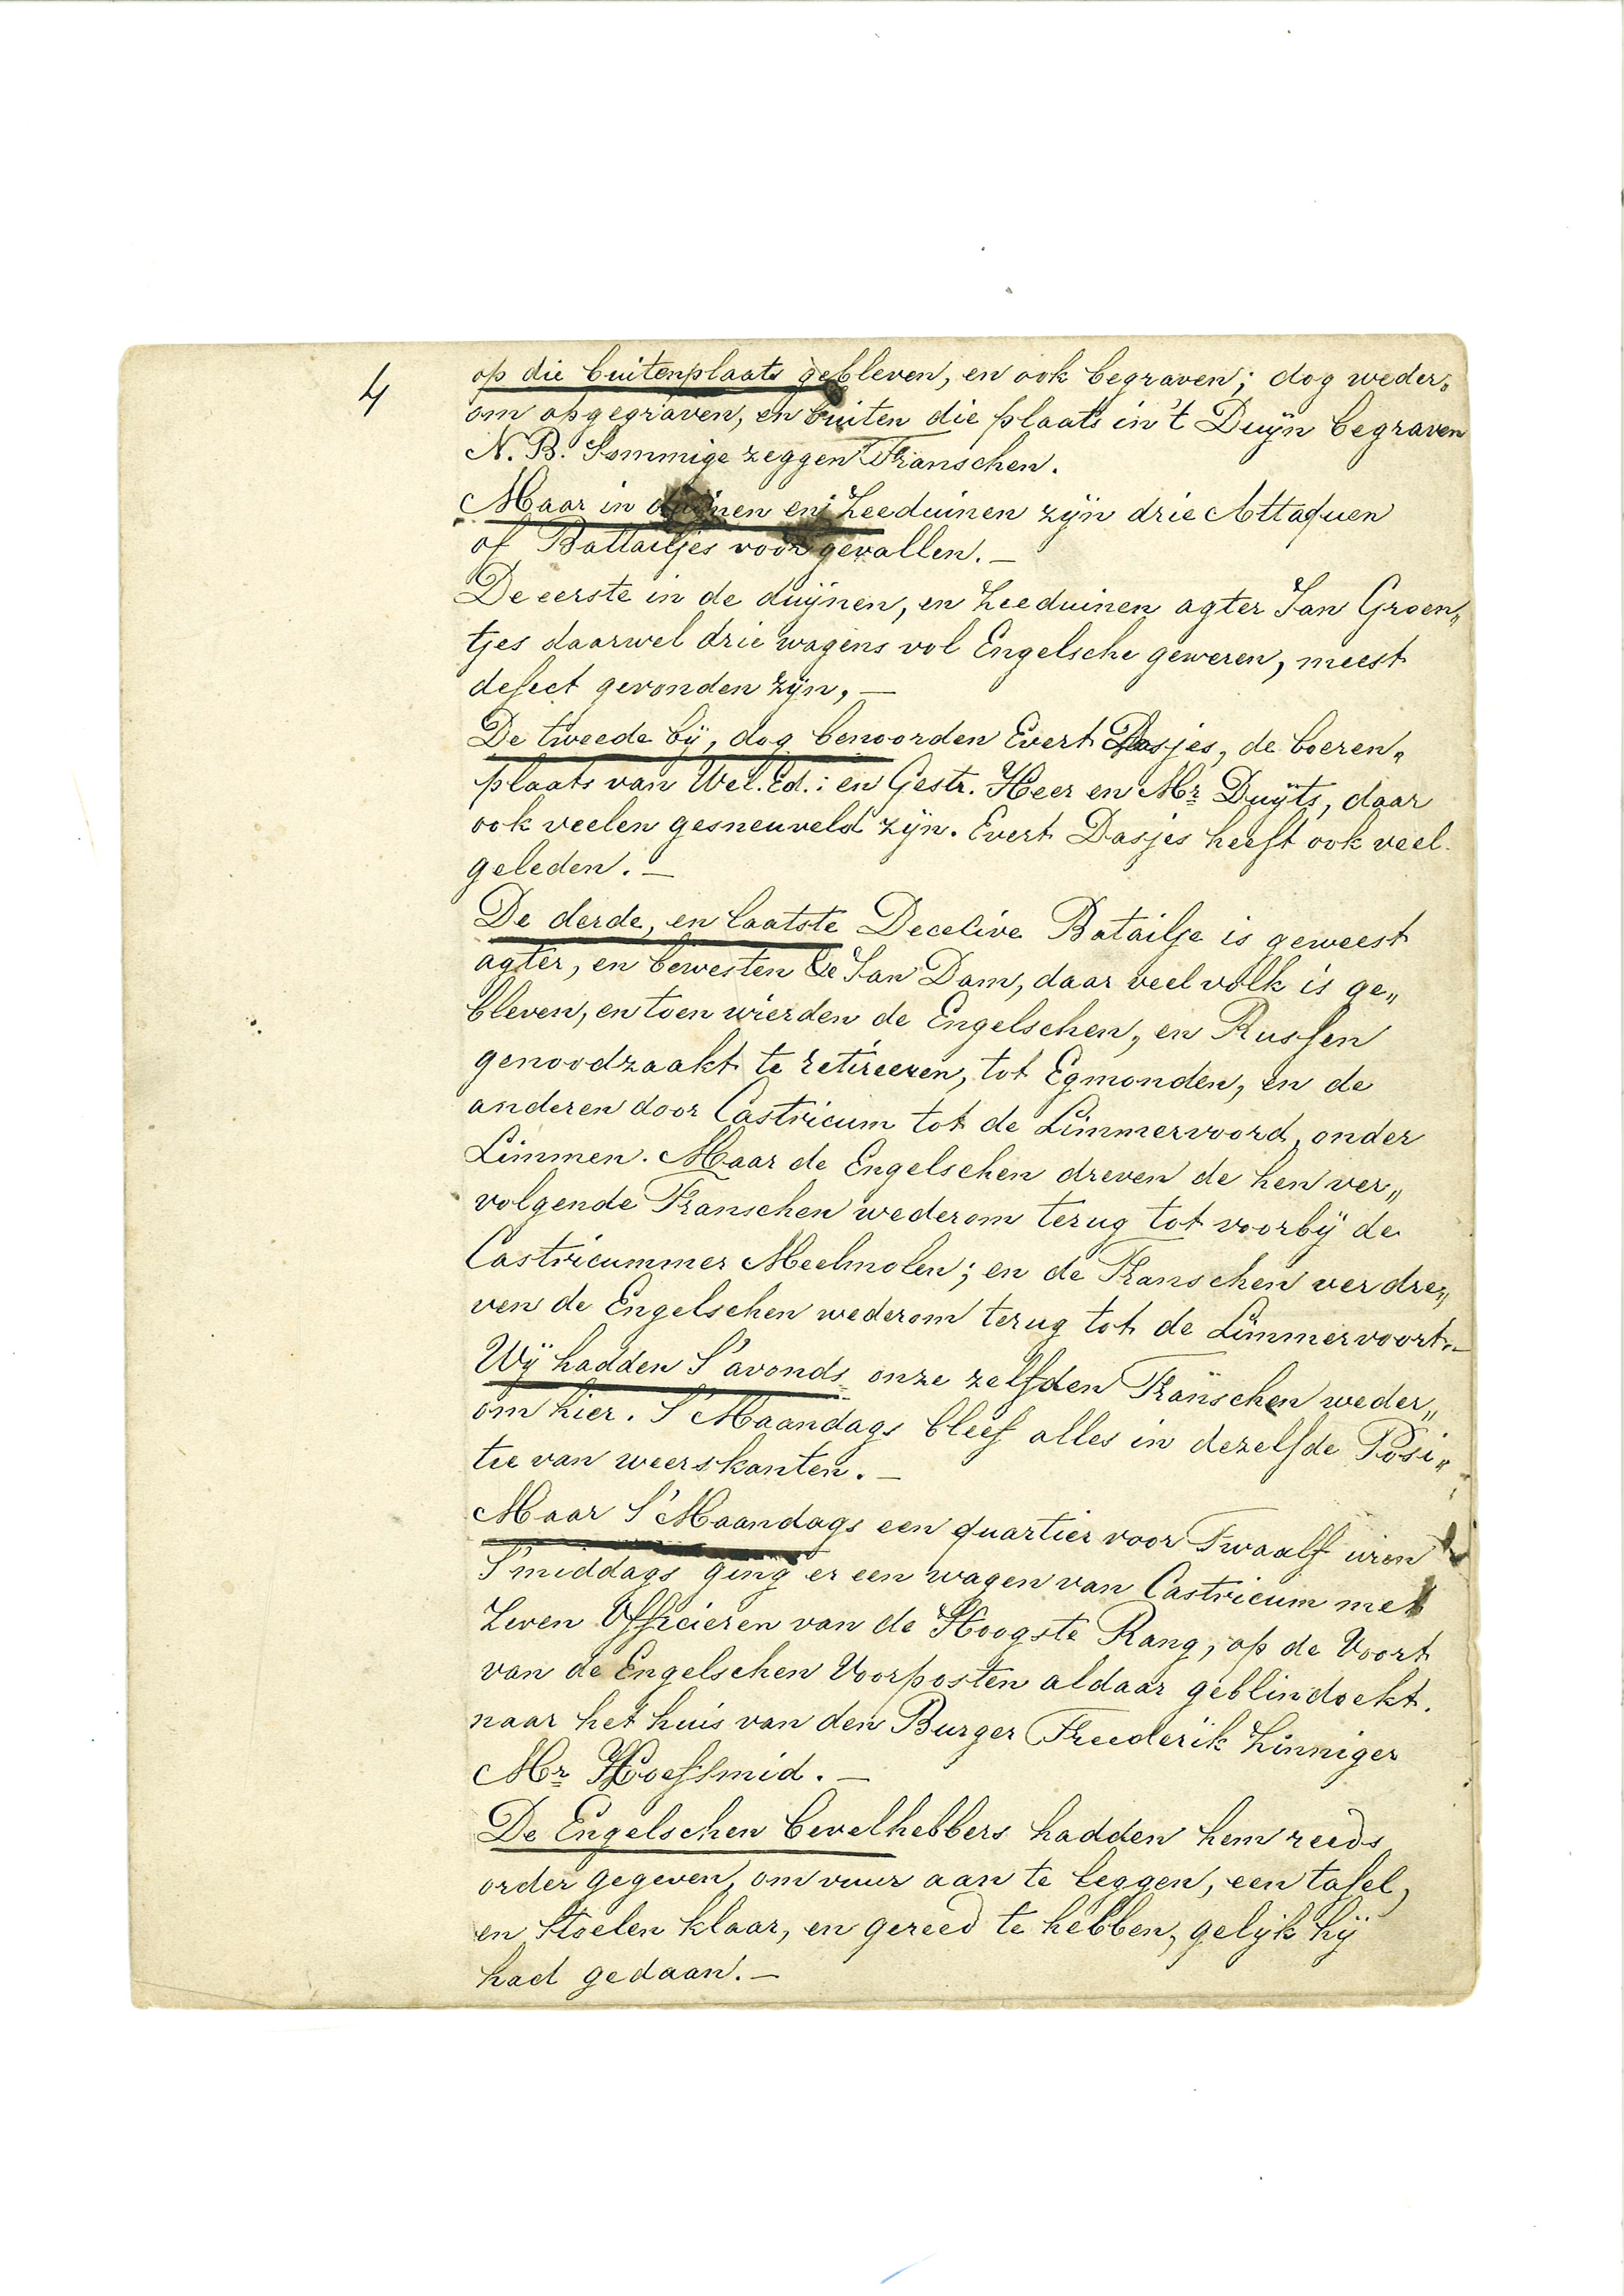 4
op die buitenplaats gebleven, en ook begraven; dog weder„
om opgegraven, en buiten die plaats in 't Duÿn begraven
N. B. Sommige zeggen Franschen.
Maar in duijnen en Zeeduinen zÿn drie Attaquen
of Battailjes voorgevallen. —
De eerste in de duÿnen, en Zeeduinen agter Jan Groen„
tjes daarwel drie wagens vol Engelsche geweren, meest
defect gevonden zÿn, —
De tweede bÿ, dog benoorden Evert Dasjes, de boeren„
plaats van Wel. Ed.: en Gestr. Heer en Mr Duÿts, daar
ook veelen gesneuveld zÿn. Evert Dasjes heeft ook veel
geleden. —
De derde, en laatste Decelive Batailje is geweest
agter, en bewesten de Jan Dam, daar veel volk is ge„
bleven, en toen wierden de Engelschen, en Russen
genoodzaakt te retireeren, tot Egmonden, en de
anderen door Castricum tot de Limmervoord, onder
Limmen. Maar de Engelschen dreven de hen ver„
volgende Franschen wederom terug tot voorbÿ de
Castricummer Meelmolen; en de Franschen verdre„
ven de Engelschen wederom terug tot de Limmervoort. —
Wÿ hadden S'avonds onze zelfden Franschen weder„
om hier. S'Maandags bleef alles in dezelfde Posi„
tie van weerskanten. —
Maar S'Maandags een quartier voor Twaalf uren
S'middags ging er een wagen van Castricum met
Zeven Officieren van de Hoogste Rang, op de Voort
van de Engelschen Voorposten aldaar geblindoekt.
naar het huis van den Burger Freederik Zinniger
Mr Hoefsmid. —
De Engelschen bevelhebbers hadden hem reeds
order gegeven, om vuur aan te leggen, een tafel,
en Stoelen klaar, en gereed te hebben, gelÿk hÿ
had gedaan. —